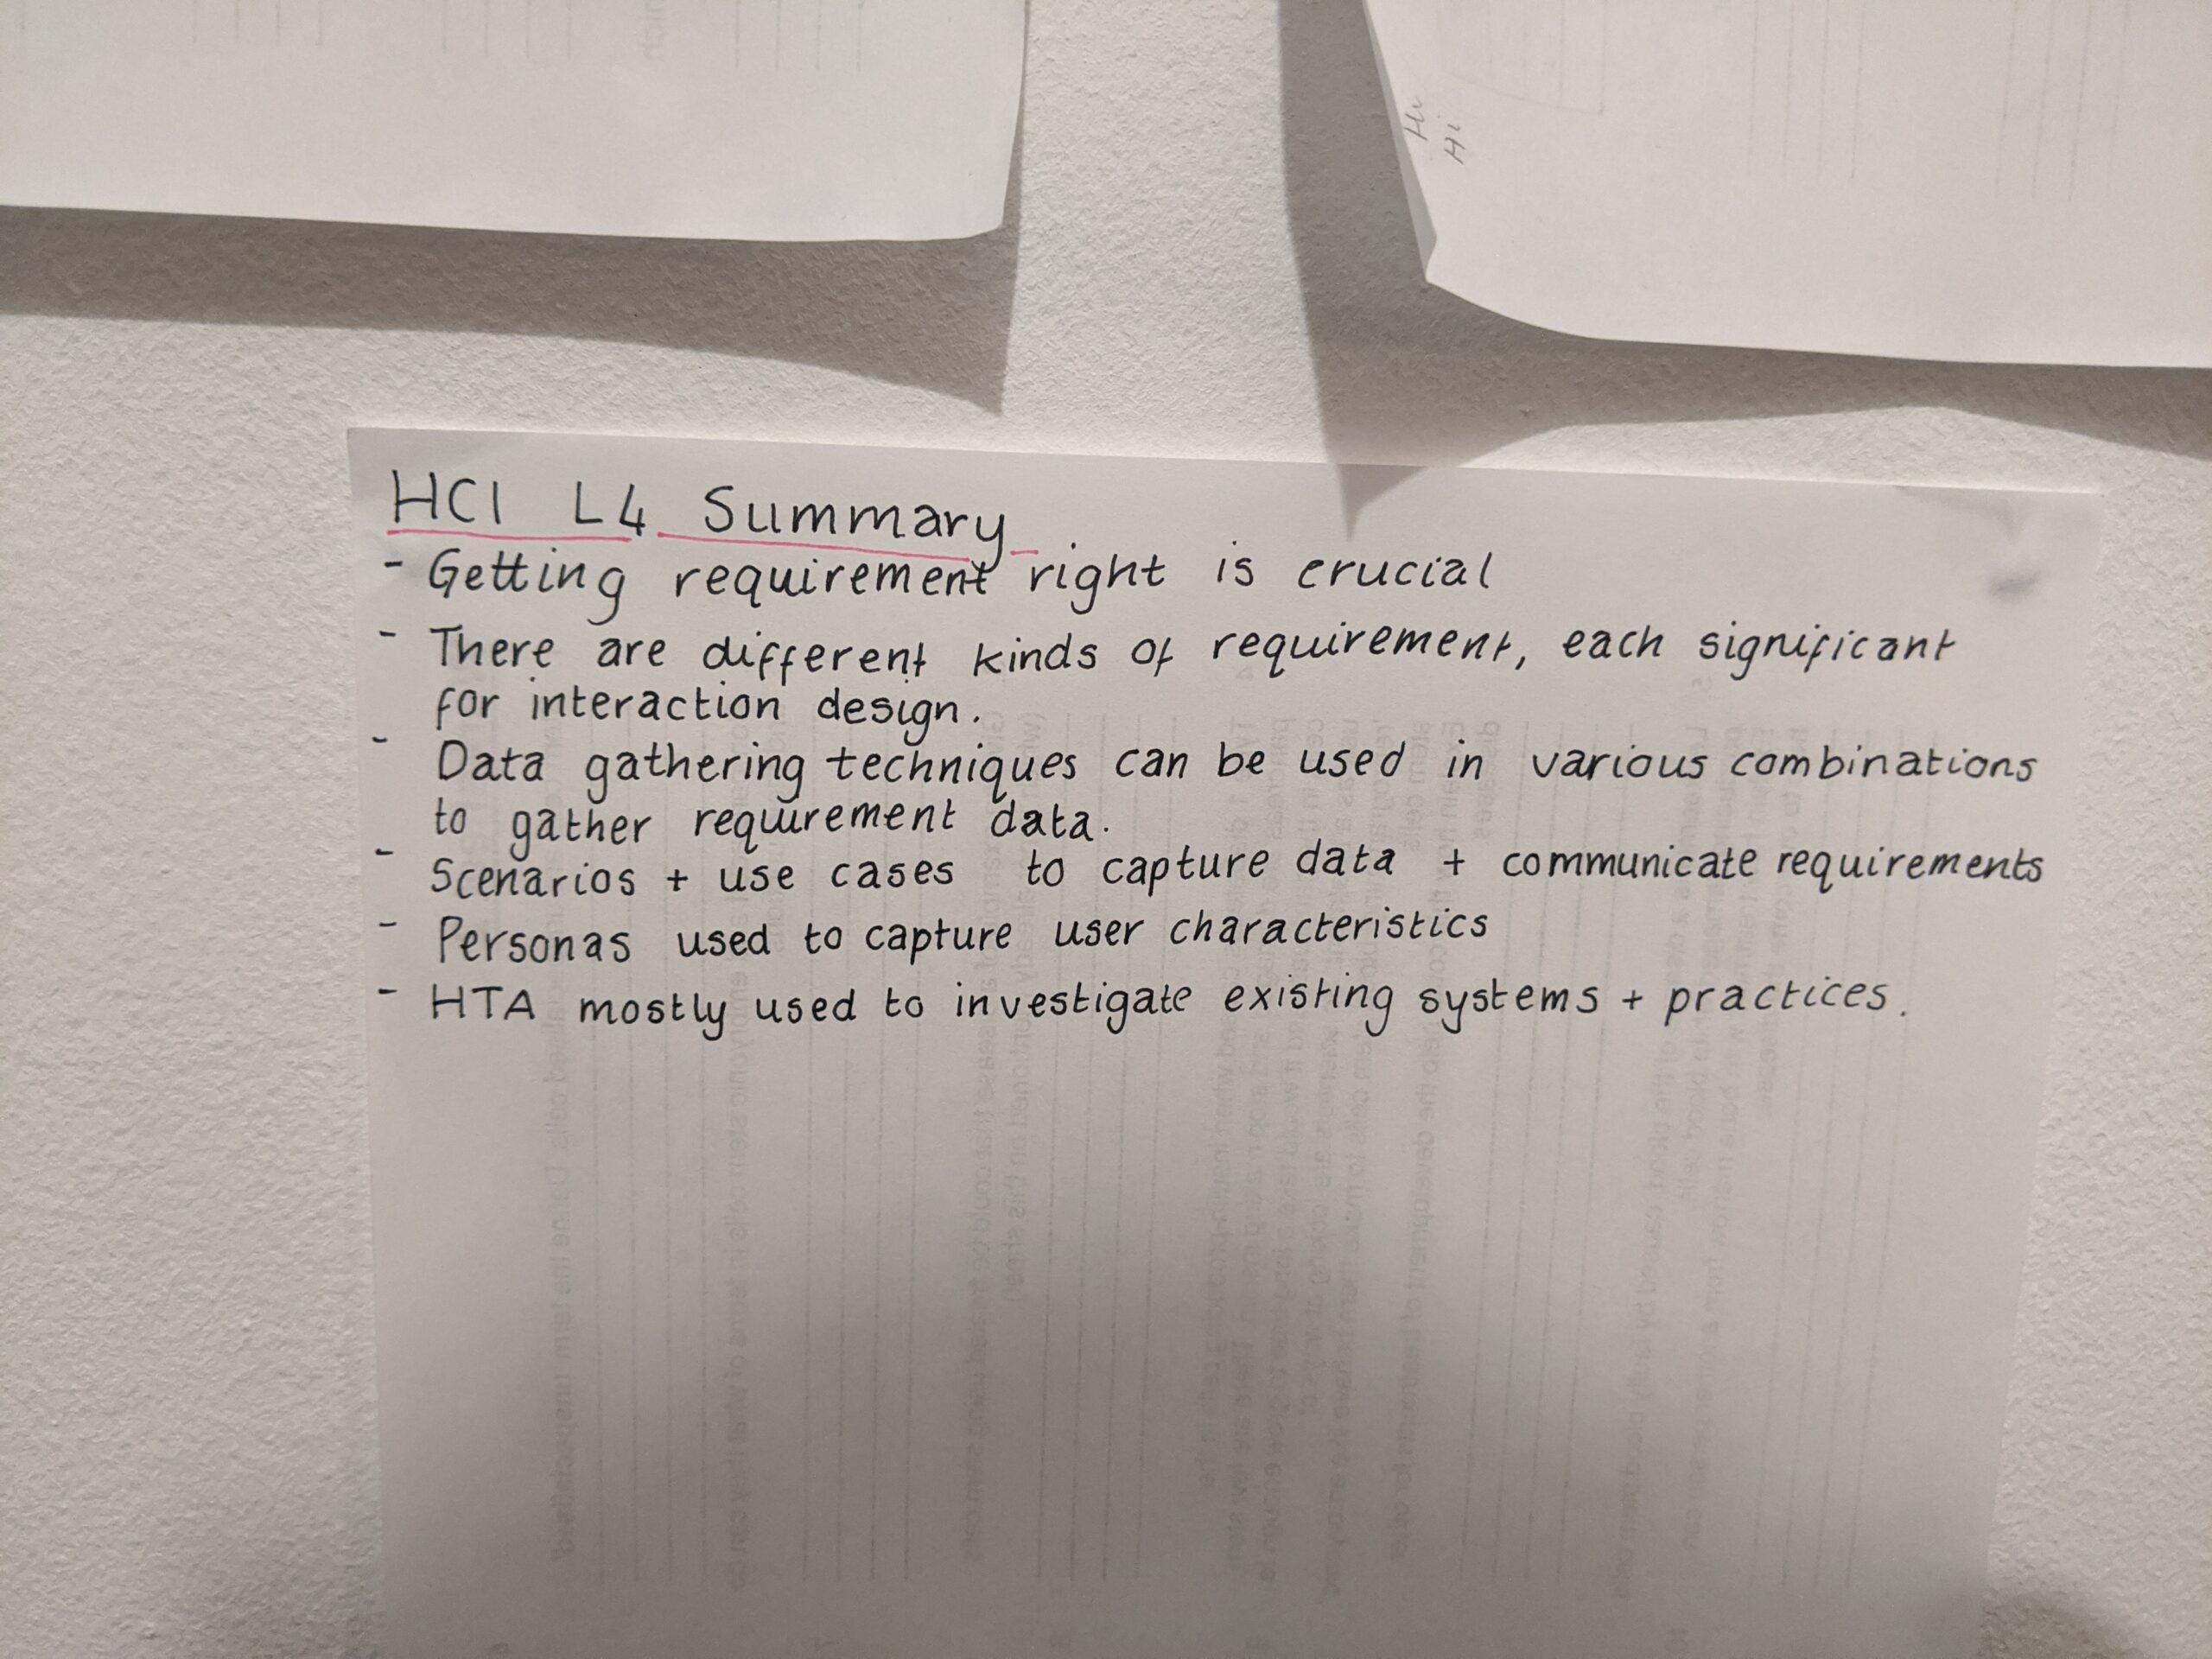 Hi
Hi
HCI L4 Summary
- Getting requirement right is crucial
- There are different kinds of requirement, each significant
for interaction design.
- Data gathering techniques can be used in various combinations
to gather requirement data.
- Scenarios + use cases to capture data + communicate requirements
- Personas used to capture user characteristics
- HTA mostly used to investigate existing systems + practices.